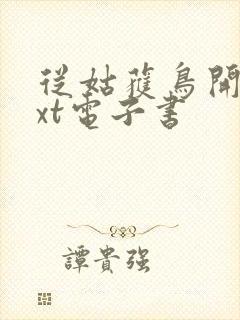 從姑獲鳥開
xt電子書
譚貴強